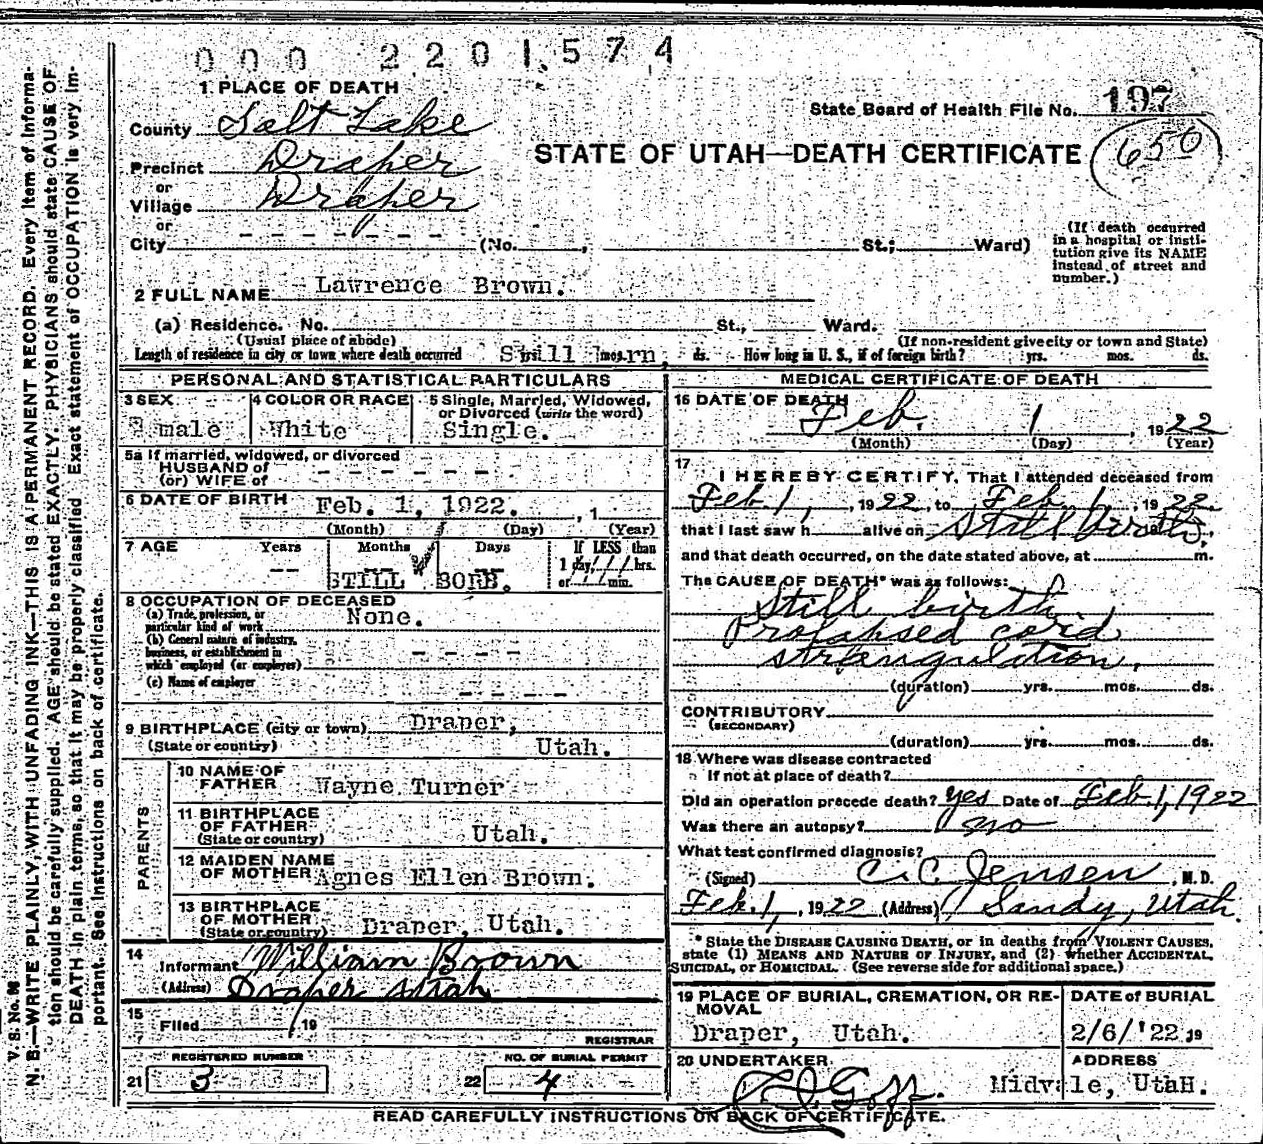 000 2201574
1 PLACE OF DEATH
State Board of Health File No. 197
County Salt Lake
STATE OF UTAH—DEATH CERTIFICATE 650
Precinct Draper
or
Village Draper
or
City (No. , St.; Ward)
(If death occurred in a hospital or insti-
tution give its NAME
instead of street and
number.)
2 FULL NAME Lawrence Brown.
(a) Residence. No. St., Ward.
(Usual place of abode) (If non-resident give city or town and State)
Length of residence in city or town where death occurred Still born, yrs. mos. ds. How long in U. S., if of foreign birth? yrs. mos. ds.
PERSONAL AND STATISTICAL PARTICULARS
3 SEX male
4 COLOR OR RACE White
5 Single, Married, Widowed,
or Divorced (write the word)
Single.
5a If married, widowed, or divorced
HUSBAND of
(or) WIFE of
6 DATE OF BIRTH Feb. 1, 1922. , 1
(Month) (Day) (Year)
7 AGE Years Months Days If LESS than
1 day, hrs.
or min.
STILL BORB.
8 OCCUPATION OF DECEASED
(a) Trade, profession, or
particular kind of work None.
(b) General nature of industry,
business, or establishment in
which employed (or employer)
(c) Name of employer
9 BIRTHPLACE (city or town) Draper,
(State or country) Utah.
PARENTS
10 NAME OF
FATHER Wayne Turner
11 BIRTHPLACE
OF FATHER
(State or country) Utah.
12 MAIDEN NAME
OF MOTHER Agnes Ellen Brown.
13 BIRTHPLACE
OF MOTHER
(State or country) Draper, Utah.
14
Informant William Brown
(Address) Draper Utah
15
Filed , 19
REGISTRAR
REGISTERED NUMBER
21 3
NO. OF BURIAL PERMIT
22 4
MEDICAL CERTIFICATE OF DEATH
16 DATE OF DEATH
Feb. 1 , 1922
(Month) (Day) (Year)
17
I HEREBY CERTIFY, That I attended deceased from
Feb 1, , 1922, to Feb 1, , 1922
that I last saw h alive on Still birth ,
and that death occurred, on the date stated above, at m.
The CAUSE OF DEATH* was as follows:
Still birth
Prolapsed cord
strangulation,
(duration) yrs. mos. ds.
CONTRIBUTORY
(SECONDARY)
(duration) yrs. mos. ds.
18 Where was disease contracted
If not at place of death?
Did an operation precede death? yes Date of Feb 1, 1922
Was there an autopsy? no
What test confirmed diagnosis?
(Signed) C. C. Jensen , M. D.
Feb. 1, , 1922 (Address) Sandy, Utah.
* State the DISEASE CAUSING DEATH, or in deaths from VIOLENT CAUSES,
state (1) MEANS AND NATURE OF INJURY, and (2) whether ACCIDENTAL,
SUICIDAL, or HOMICIDAL. (See reverse side for additional space.)
19 PLACE OF BURIAL, CREMATION, OR RE-
MOVAL
Draper, Utah.
DATE of BURIAL
2/6/'22 19
20 UNDERTAKER
Goff.
ADDRESS
Midvale, UtaH.
READ CAREFULLY INSTRUCTIONS ON BACK OF CERTIFICATE.
V. S. No.
N. B.—WRITE PLAINLY, WITH UNFADING INK—THIS IS A PERMANENT RECORD. Every item of informa-
tion should be carefully supplied. AGE should be stated EXACTLY. PHYSICIANS should state CAUSE OF
DEATH in plain terms, so that it may be properly classified. Exact statement of OCCUPATION is very im-
portant. See instructions on back of certificate.